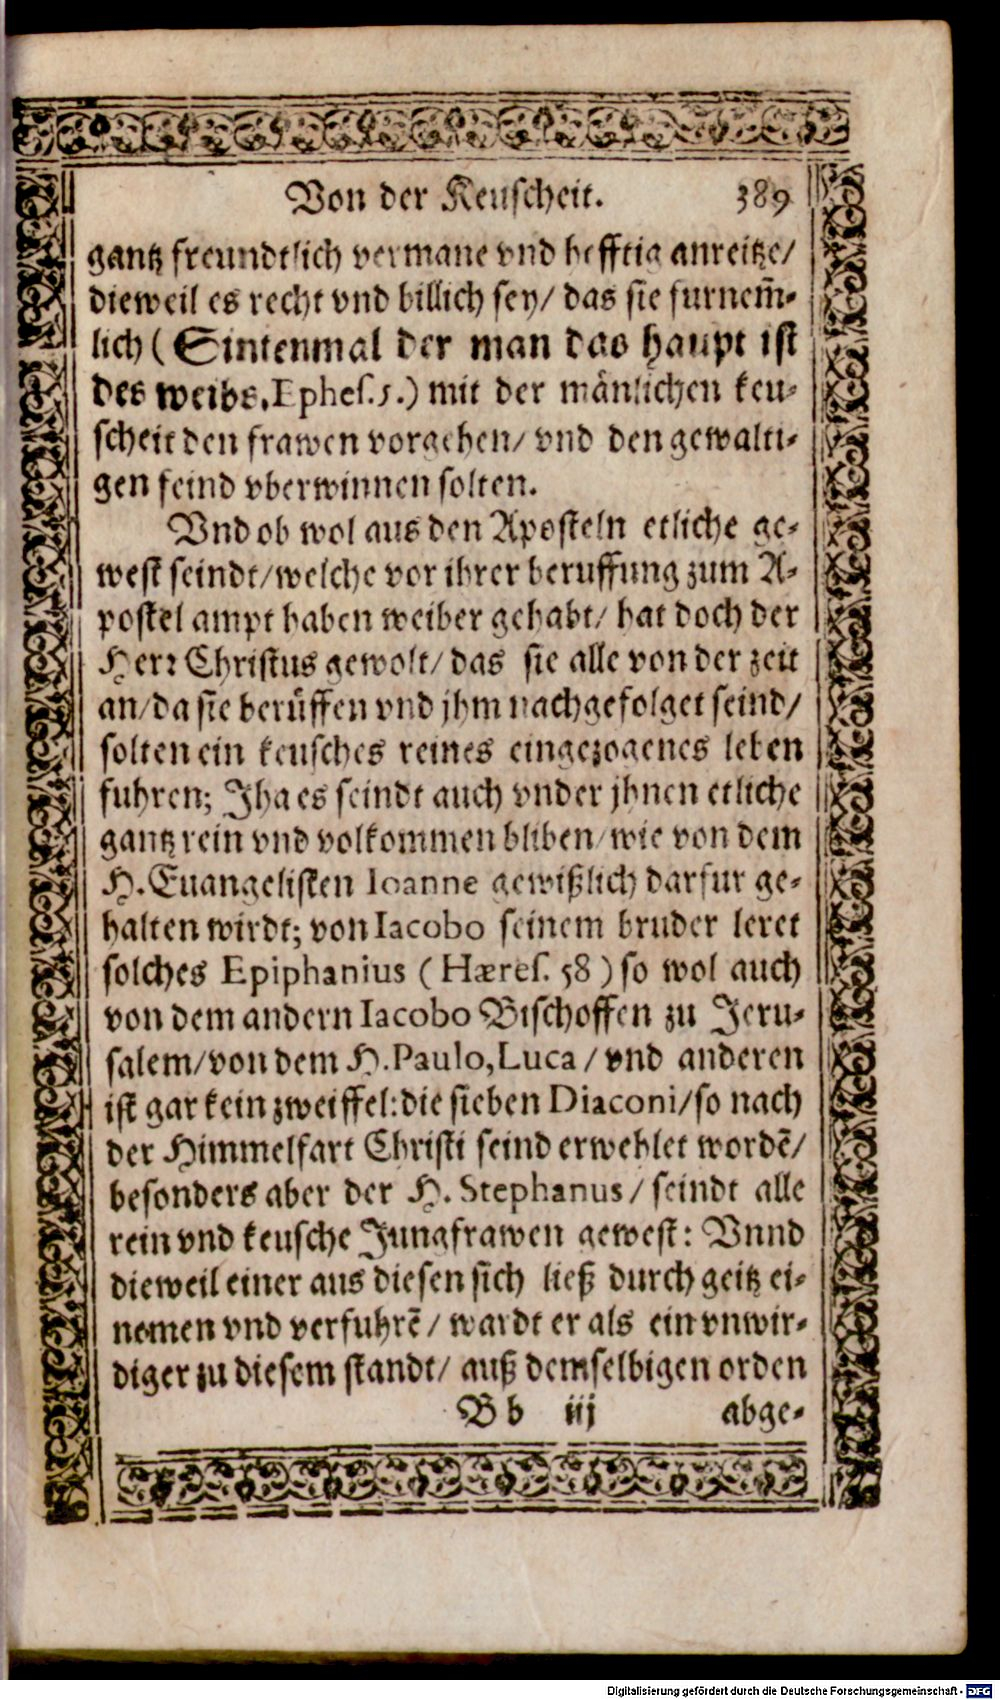 Von der Keuscheit. 389
gantz freundtlich vermane vnd hefftig anreitze/
dieweil es recht vnd billich sey/ das sie furnem̄-
lich ( Sintenmal der man das haupt ist
des weibs. Ephes. 5.) mit der mänlichen keu-
scheit den frawen vorgehen/ vnd den gewalti-
gen feind vberwinnen solten.
Vnd ob wol aus den Aposteln etliche ge-
west seindt/welche vor ihrer beruffung zum A-
postel ampt haben weiber gehabt/ hat doch der
Herr Christus gewolt/ das sie alle von der zeit
an/da sie berůffen vnd jhm nachgefolget seind/
solten ein keusches reines eingezogenes leben
fuhren; Jha es seindt auch vnder jhnen etliche
gantz rein vnd volkommen bliben/wie von dem
H. Euangelisten Ioanne gewißlich darfur ge-
halten wirdt; von Iacobo seinem bruder leret
solches Epiphanius ( Hæres. 58 ) so wol auch
von dem andern Iacobo Bischoffen zu Jeru-
salem/von dem H. Paulo, Luca / vnd anderen
ist gar kein zweiffel: die sieben Diaconi/so nach
der Himmelfart Christi seind erwehlet wordē/
besonders aber der H. Stephanus / seindt alle
rein vnd keusche Jungfrawen gewest: Vnnd
dieweil einer aus diesen sich ließ durch geitz ei-
nemen vnd verfuhrē / wardt er als ein vnwir-
diger zu diesem standt/ auß demselbigen orden
B b iij abge-
Digitalisierung gefördert durch die Deutsche Forschungsgemeinschaft - DFG